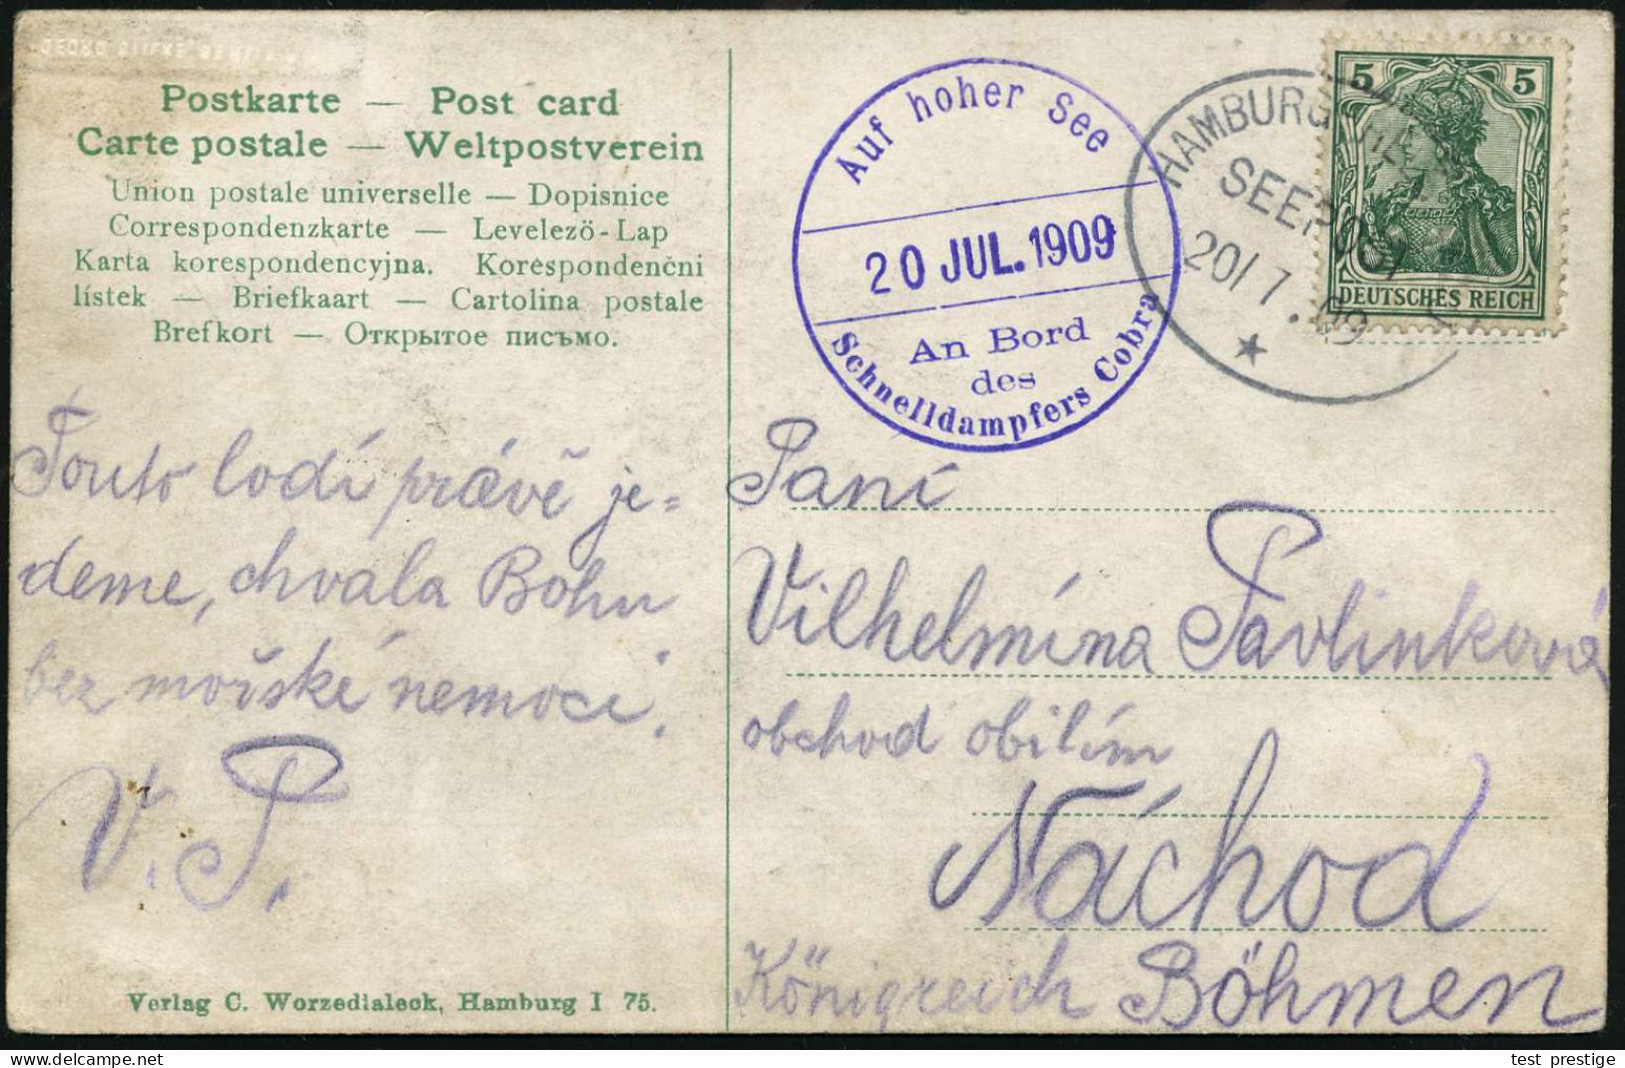 Postkarte — Post card
Carte postale — Weltpostverein
Union postale universelle — Dopisnice
Correspondenzkarte — Levelező-Lap
Karta korespondencyjna. Korespondenčni
lístek — Briefkaart — Cartolina postale
Brefkort — Открытое письмо.
Auf hoher See
20 JUL. 1909
An Bord
des
Schnelldampfers Cobra
HAMBURG
SEEPOST
20/7.09
5 5
DEUTSCHES REICH
Touto lodí právě je=
deme, chvala Bohu
bez mořské nemoci.
V. P.
Paní
Vilhelmína Pavlinková
obchod obilím
Náchod
Königreich Böhmen
Verlag C. Worzedialeck, Hamburg I 75.
test prestige